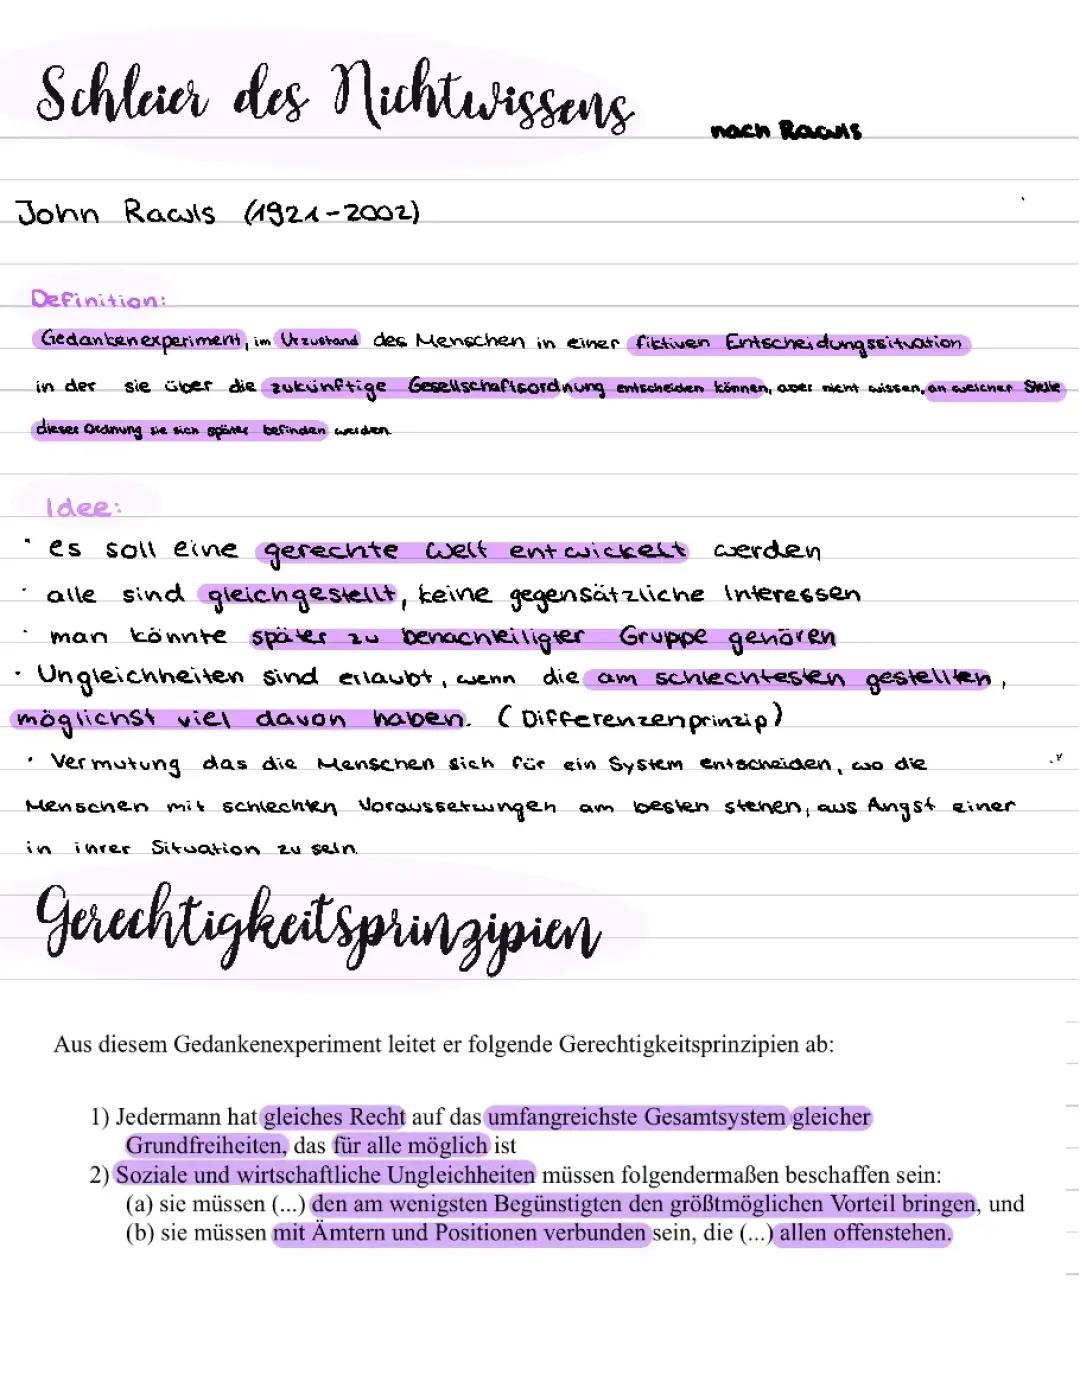 Schleier des Nichtwissens
nach Rawls
John Rawls (1921-2002)
Definition:
Gedankenexperiment, im Urzustand des Menschen in einer fiktiven Entscheidungssituation
in der sie über die zukünftige Gesellschaftsordnung entscheiden können, aber nicht wissen, an welcher Stelle
dieser Ordnung sie sich später befinden werden
Idee:
· es soll eine gerechte Welt entwickelt werden
· alle sind gleichgestellt, keine gegensätzliche Interessen
· man könnte später zu benachteiligter Gruppe gehören
· Ungleichheiten sind erlaubt, wenn die am schlechtesten gestellten,
möglichst viel davon haben. (Differenzenprinzip)
· Vermutung das die Menschen sich für ein System entscheiden, wo die
Menschen mit schlechten Voraussetzungen am besten stehen, aus Angst einer
in ihrer Situation zu sein.
Gerechtigkeitsprinzipien
Aus diesem Gedankenexperiment leitet er folgende Gerechtigkeitsprinzipien ab:
1) Jedermann hat gleiches Recht auf das umfangreichste Gesamtsystem gleicher
Grundfreiheiten, das für alle möglich ist
2) Soziale und wirtschaftliche Ungleichheiten müssen folgendermaßen beschaffen sein:
(a) sie müssen (...) den am wenigsten Begünstigten den größtmöglichen Vorteil bringen, und
(b) sie müssen mit Ämtern und Positionen verbunden sein, die (...) allen offenstehen.